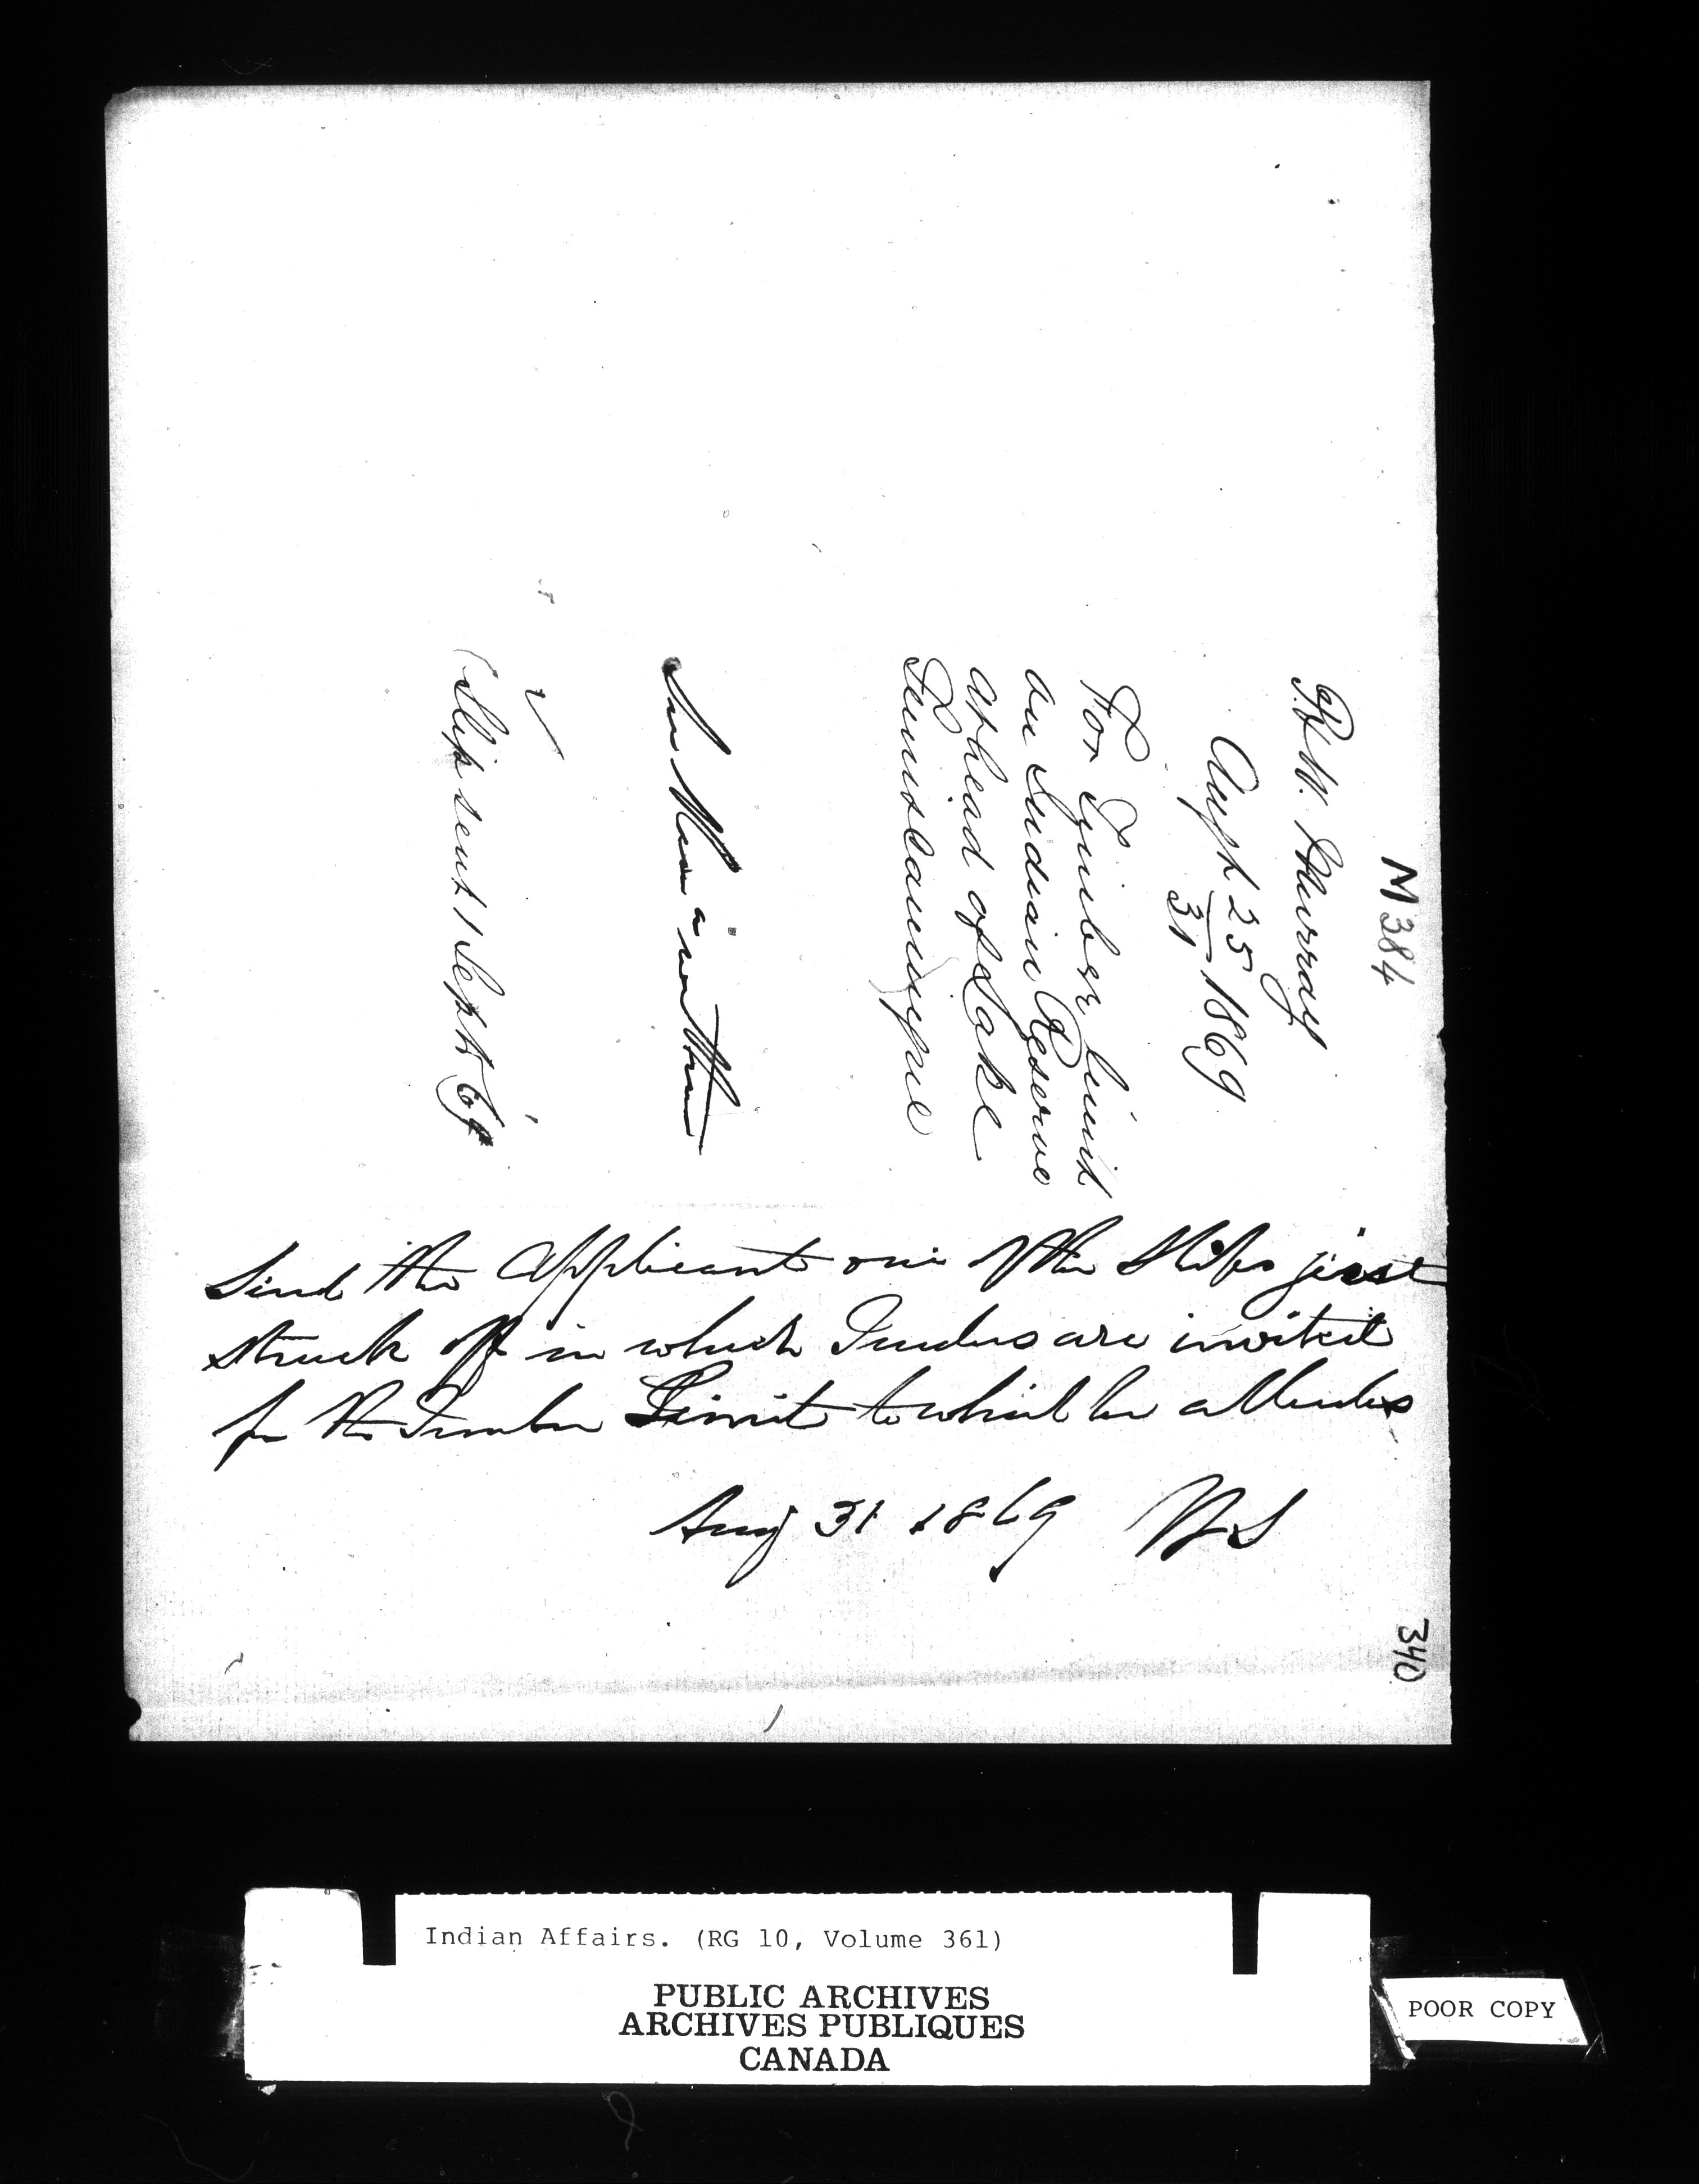 M 384
R. W. Murray
Augst 25/31 1869
For Timber limit
on Indian Reserve
at head of Lake
Temiscamingue
See Mem within
(Slip sent 1 Sept. 69
Send the Applicant one of the Slips just
struck off in which Tenders are invited
for the Timber Limit to which he alludes
Aug 31 1869 WS
340
Indian Affairs. (RG 10, Volume 361)
PUBLIC ARCHIVES
ARCHIVES PUBLIQUES
CANADA
POOR COPY